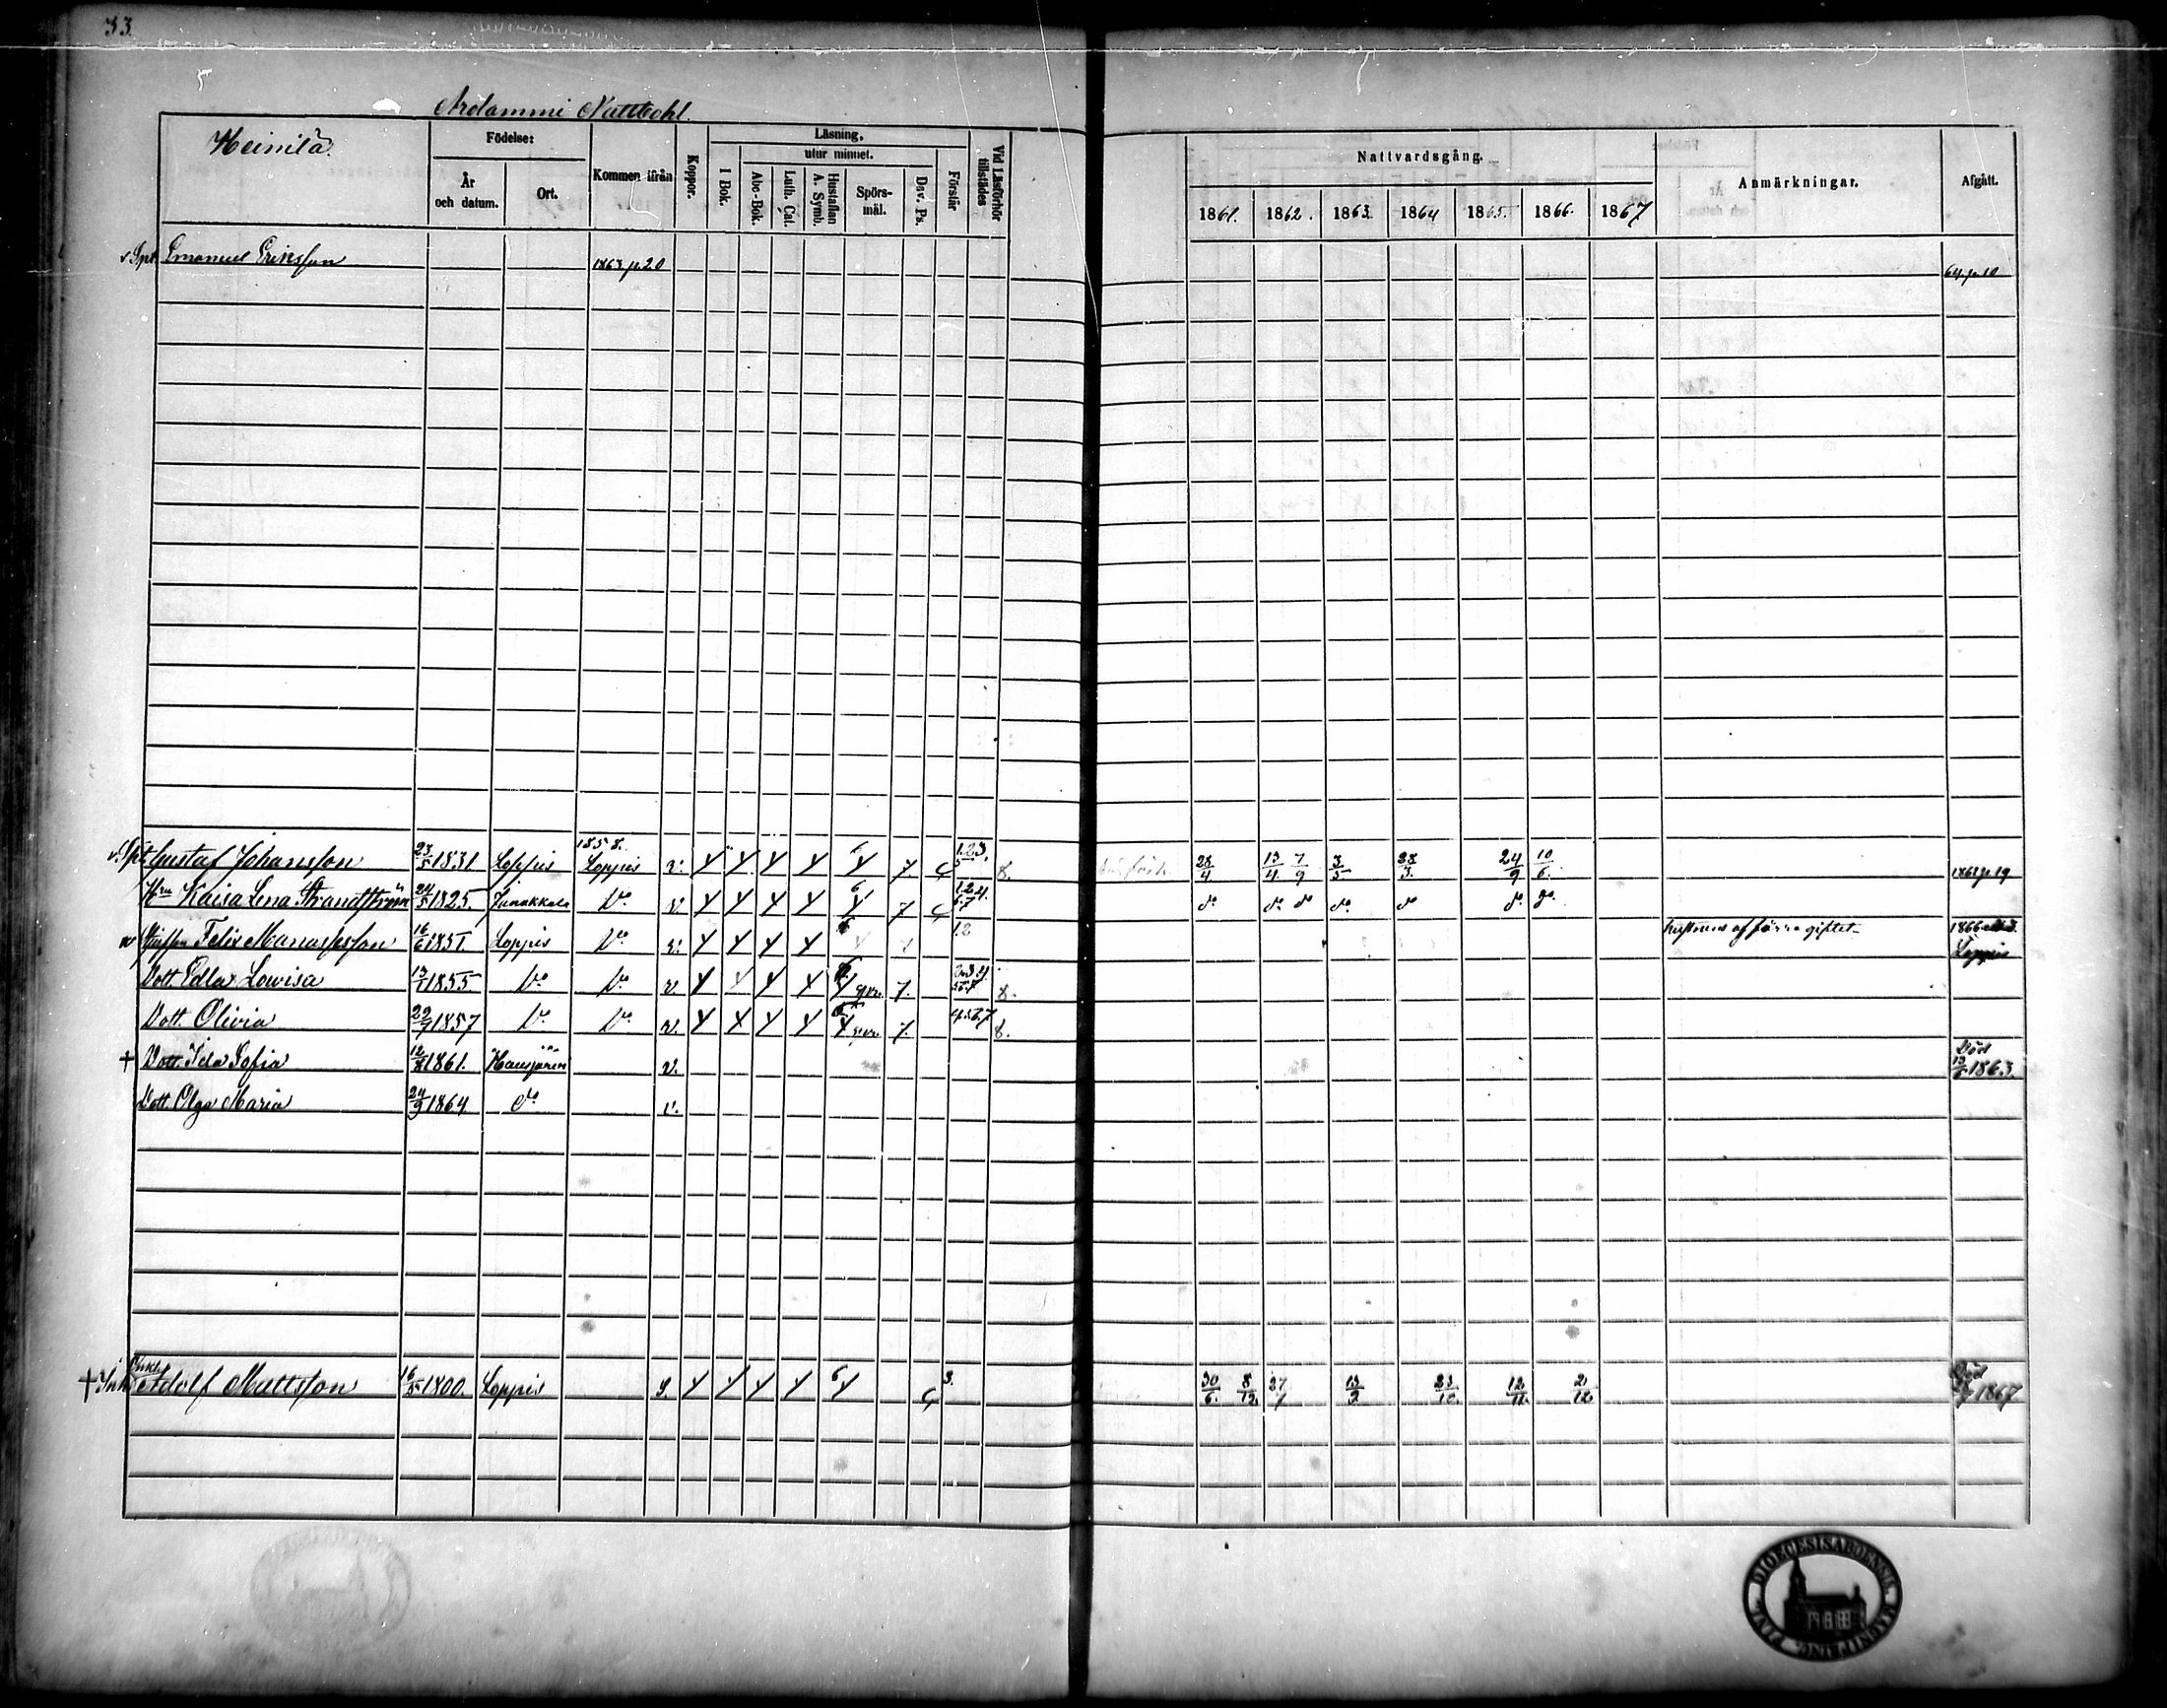 33
Ardammi Nattbohl.
Heimilä
Födelse:
År och datum.
Ort.
Kommen ifrån
Koppor.
Läsning,
utur minnet.
I Bok.
Abc-Bok.
Luth. Cat.
Hustaflan A. Symb.
Spörs-mål.
Dav. Ps.
Förstår
Vid Läsförhör tillstädes
Nattvardsgång.
1861. 1862. 1863. 1864 1865. 1866. 1867
Anmärkningar.
Afgått.
Emanuel Eriksson 1863 p. 20 64 p. 10
Gustaf Johansson 23/5 1831 Loppis 1858. Loppis v. 7 1.2.3. 5 8. 28/4 13/4 7/9 3/5 28/3. 24/9 10/6.
Hru Kaisa Lena Strandström 24/5 1825. Janakkala Do v. 7 do do do do do do
Felix Manassesson 16/6 1851. Loppis Do v. 1.2 hustruns af förra giftet 1866 Loppis
Dott. Edla Lowisa 13/1 1855 Do Do v. 7. 8.
Dott. Olivia 22/9 1857 Do Do v. 7. 4.5.6.7 8.
† Dott. Ida Sofia 12/8 1861. Hausjärvi v. Död 13/6 1863.
Dott Olga Maria 24/9 1864 do v.
† Inh. Enkl. Adolf Mattsson 16/5 1800. Loppis 6 3. 30/6. 8/12. 27/7 13/2 23/10. 12/11. 2/12 Död 1867
DIOECESIS ABOENSIS MAGNI PRINC. FINL.